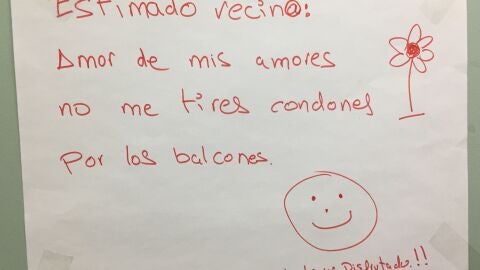 Estimado vecin@:
Amor de mis amores
no me tires condones
por los balcones.
disfrutado.!!